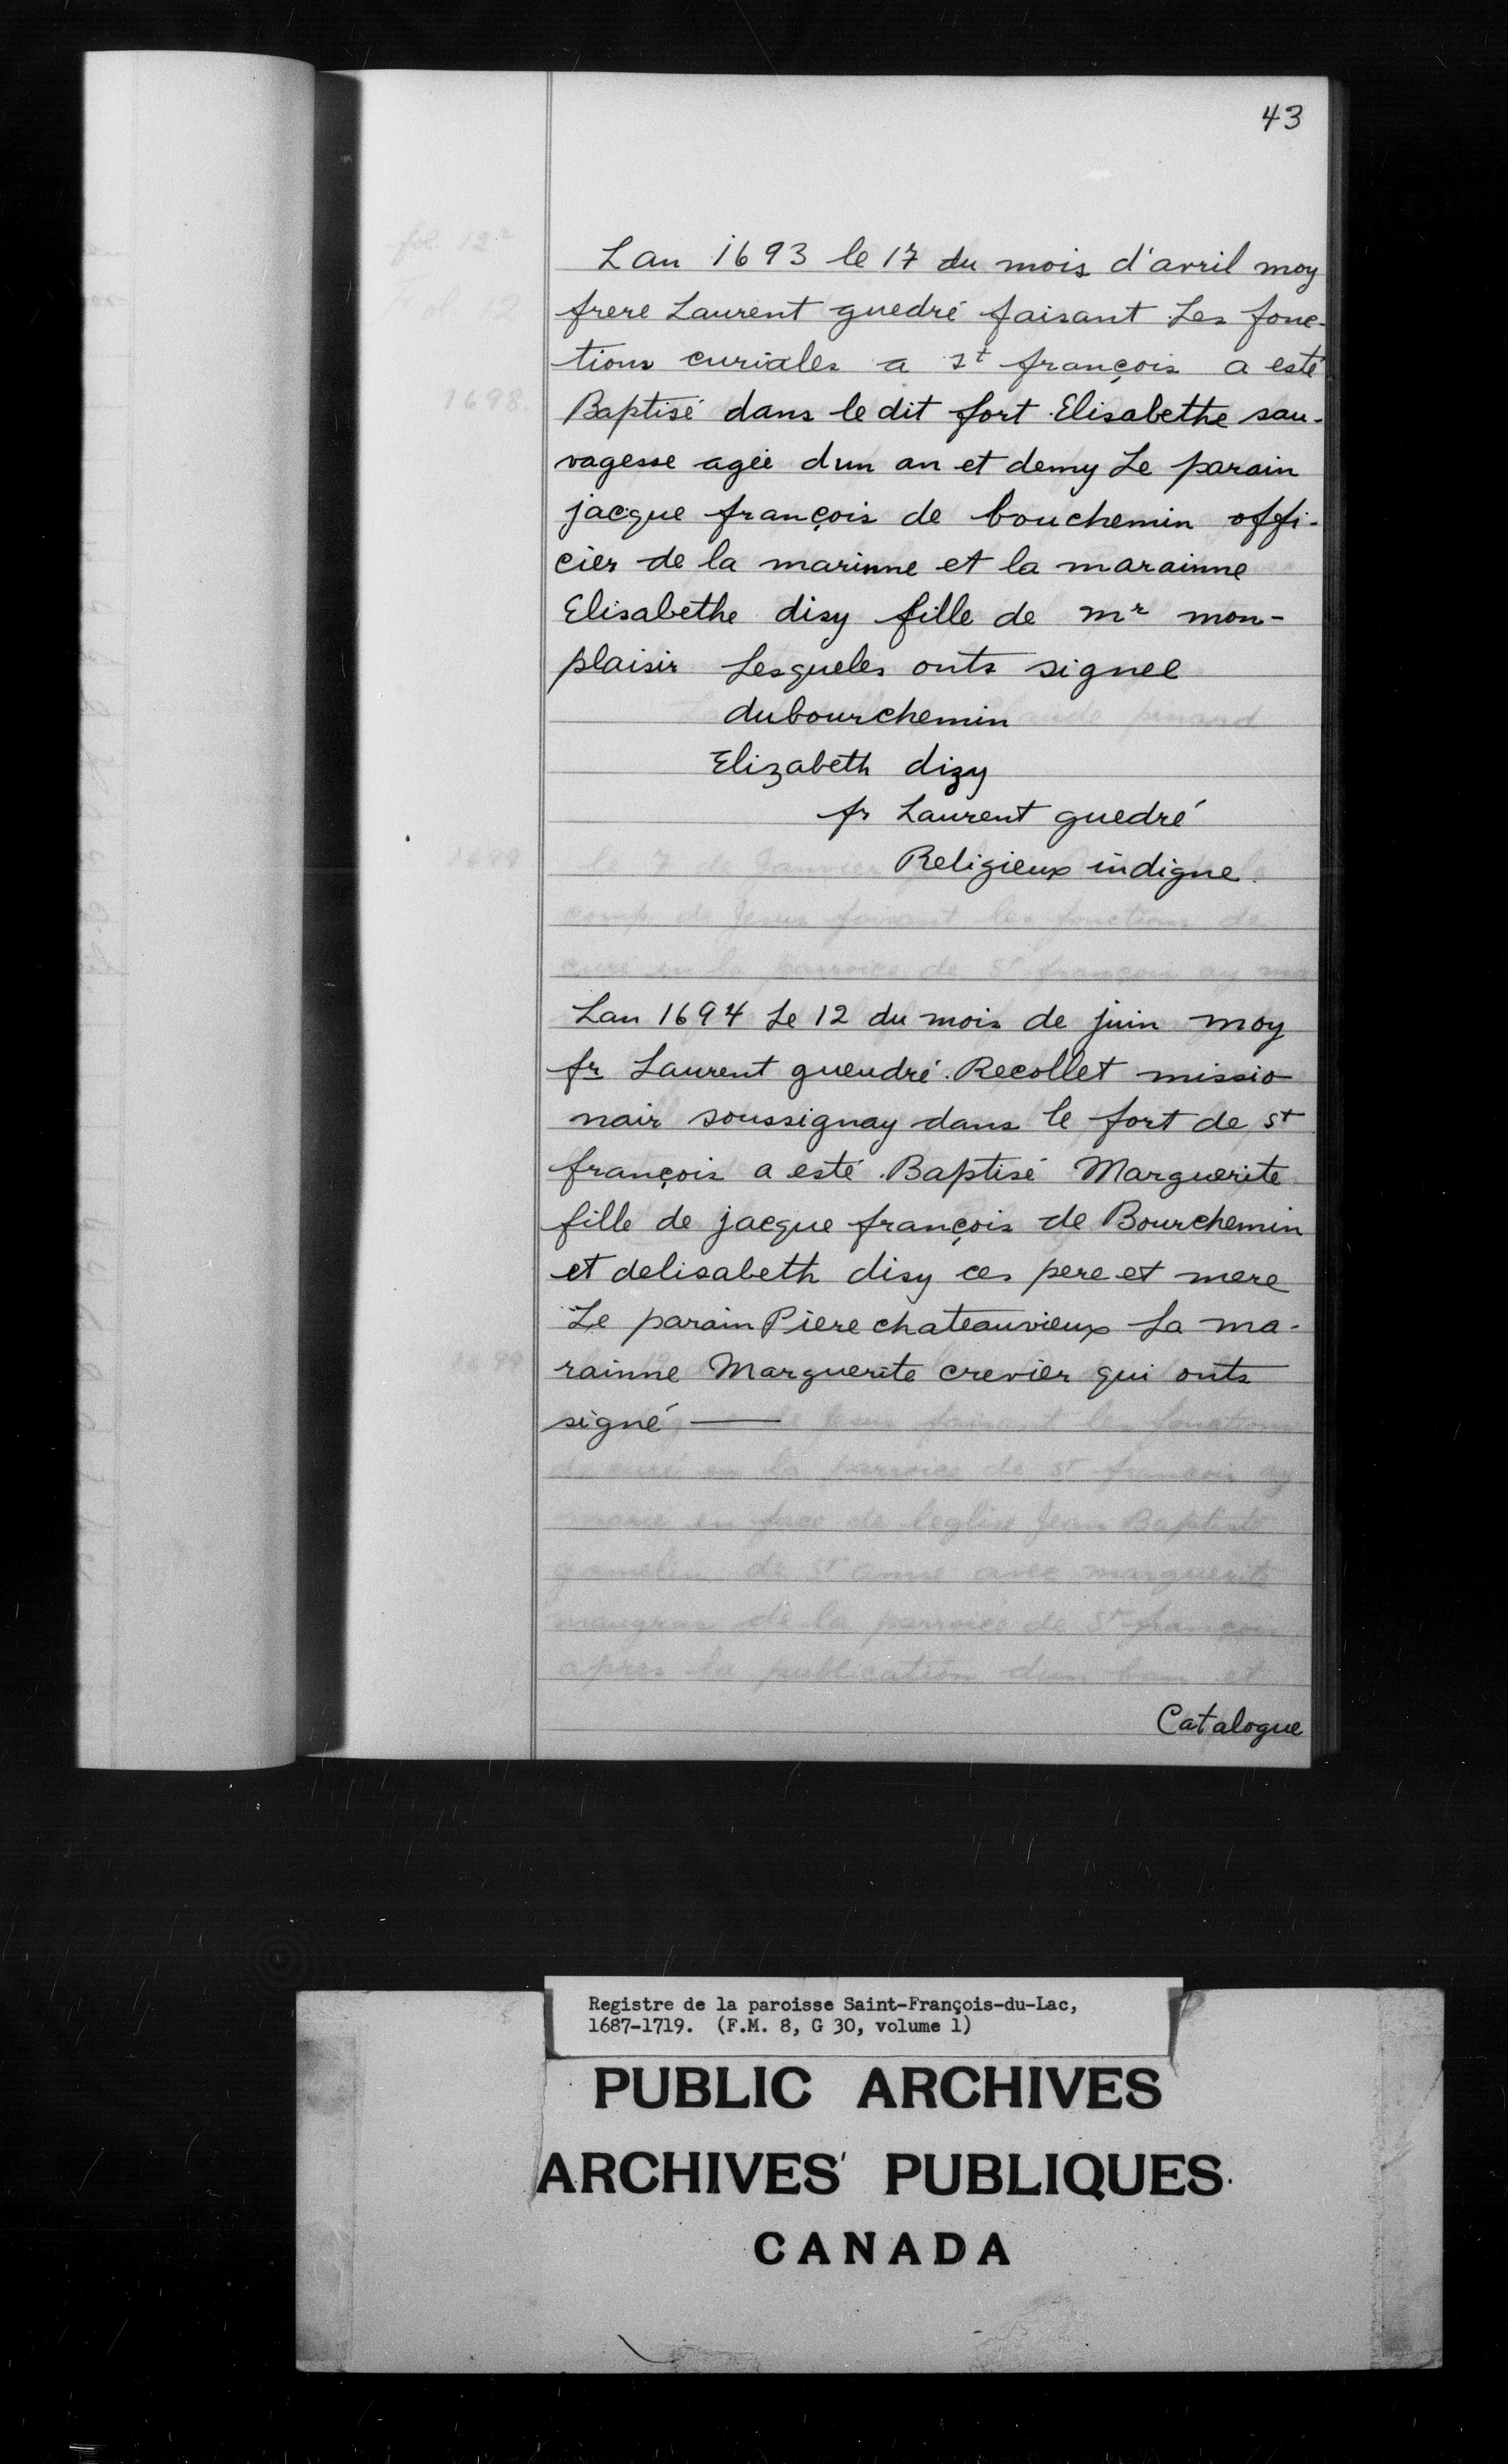 43
Lan 1693 le 17 du mois d'avril moy
frere Laurent guedré faisant Les fonc-
tions curiales a st françois a esté
Baptisé dans le dit fort Elisabethe sau-
vagesse agée dun an et demy Le parain
jacque françois de bouchemin offi-
cier de la marinne et la marainne
Elisabethe disy fille de mr mon-
plaisir Lesqueles onts signee
dubourchemin
Elizabeth dizy
fr Laurent guedré
Religieux indigne.
Lan 1694 Le 12 du mois de juin moy
fr Laurent gueudré Recollet missio
nair soussignay dans le fort de st
françois a esté Baptisé Marguerite
fille de jacque françois de Bourchemin
et delisabeth disy ces pere et mere
Le parain Piere chateauvieux La ma-
rainne Marguerite crevier qui onts
signé —
Catalogue
Registre de la paroisse Saint-François-du-Lac,
1687-1719. (F.M. 8, G 30, volume 1)
PUBLIC ARCHIVES
ARCHIVES PUBLIQUES
CANADA